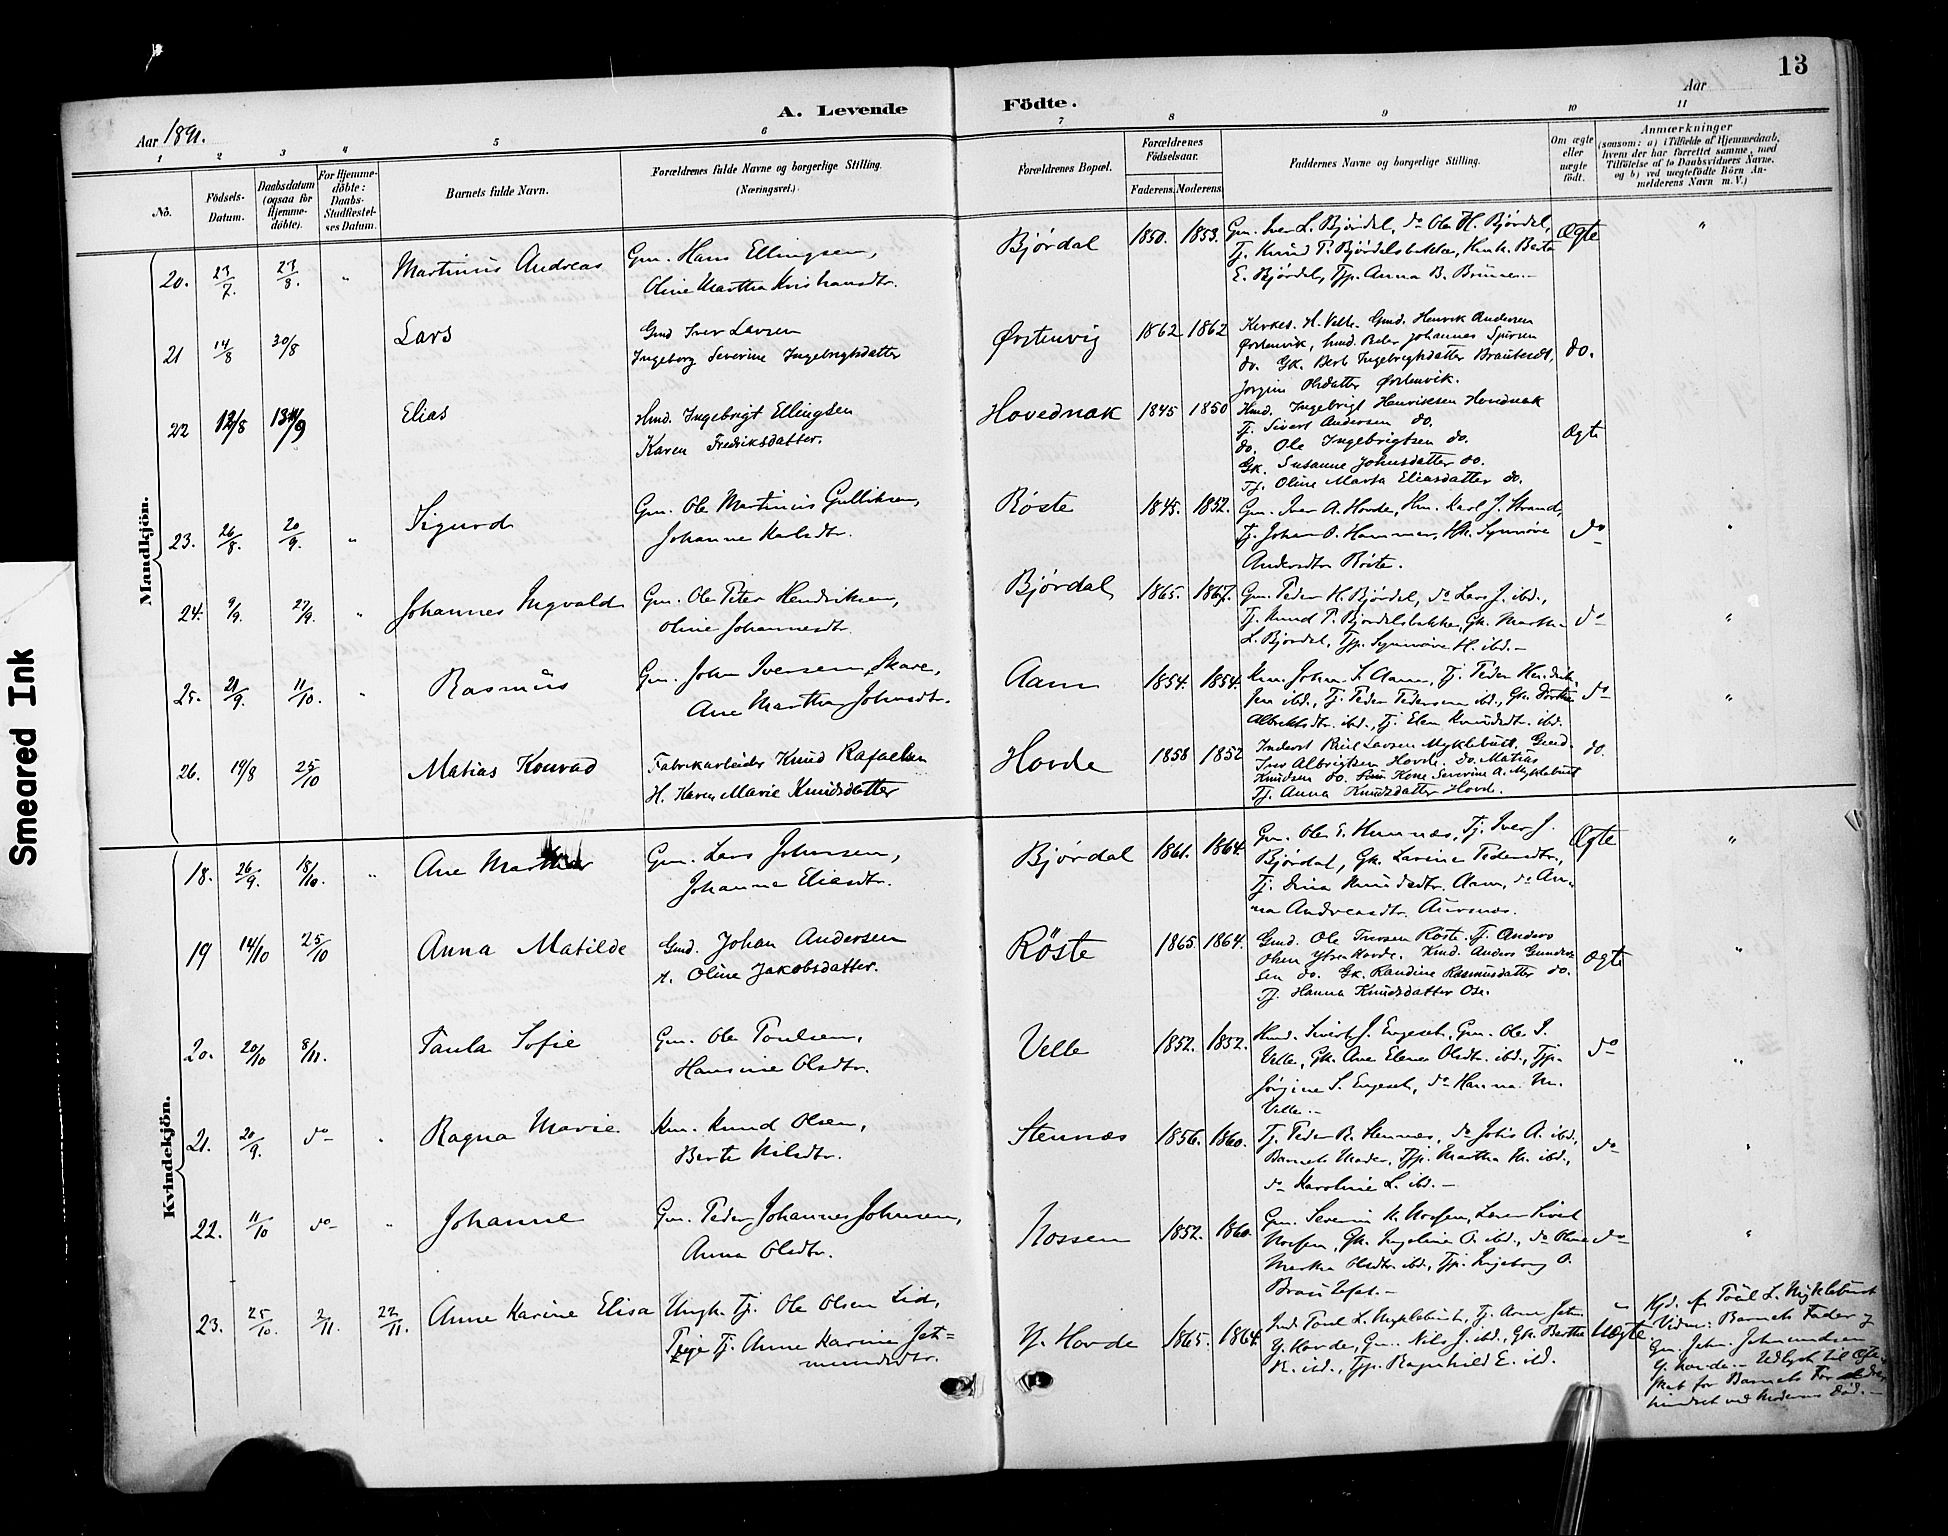 13
A. Levende Födte.
Aar 1891.
Aar
1 2 3 4 5 6 7 8 9 10 11
No.
Födsels-Datum.
Daabsdatum (ogsaa for Hjemme-döbte).
For Hjemme-döbte: Daabs-Stadfæstel-ses Datum.
Barnets fulde Navn.
Forældrenes fulde Navne og borgerlige Stilling. (Næringsvei.)
Forældrenes Bopæl.
Forældrenes Födselsaar.
Faderens. Moderens.
Faddernes Navne og borgerlige Stilling.
Om ægte eller uægte födt.
Anmærkninger
(saasom: a) i Tilfælde af Hjemmedaab,
hvem der har forrettet samme, med
Tilföielse af to Daabsvidners Navne,
og b) ved uægtefödte Börn An-
melderens Navn m. V.)
Mandkjön.
20. 23/7. 23/8. " Martinus Andreas
Gm. Hans Ellingsen,
Oline Martha Kristiansdtr.
Bjørdal 1850. 1853.
Gm. Iver L. Bjørdal, do Ole H. Bjørdal,
Tj. Knud P. Bjørdalsbakke, Kmk. Berte
E. Bjørdal, Tjp. Anna B.
Ægte "
21 14/8 30/8 Lars
Gmd Iver Larsen
Ingeborg Severine Ingebrigtsdatter
Ørstenvig 1862 1862
Kirkes. H. Velle. Gmd. Henrik Andersen
Ørstenvik, Johannes
do. Gk. Berte Ingebrigtsdatter
Jorgine Olsdatter Ørstenvik.
do.
22 12/8 13/9 Elias
Hmd. Ingebrigt Ellingsen
Karen Fredriksdatter.
Hovednak 1845 1850
Hmd. Ingebrigt Henriksen Hovednak
Tj. Sivert Andersen do.
do. Ole Ingebrigtsen do.
Gk. Susanne Johnsdatter do.
Tj. Oline Marta Eliasdatter do.
Ægte
23. 26/8. 20/9. " Sigurd
Gm. Ole Martinus Gulliksen,
Johanne Karlsdtr.
Røste 1845. 1852.
Gm. Iver A. Hovde, Hm. Karl J. Strand,
Tj. Johan O. Hammer, Hk. Synnøve
Andersdtr. Røste.
do "
24. 9/9. 27/9. " Johannes Ingvald
Gm. Ole Peter Hendriksen,
Oline Johannesdtr.
Bjørdal 1865. 1867.
Gm. Peder K. Bjørdal, do Lars J. ibd.,
Tj. Knud P. Bjørdalsbakke, Gk. Martha
L. Bjørdal, Tjp. Synnøve H. ibd.–
do "
25. 21/9. 11/10. " Rasmus
Gm. John Iversen Skare,
Ane Martha Johnsdtr.
Aam 1854. 1854.
Km. Johan S. Aam, Tj. Peder Hendrik-
sen ibd., Tj. Peder Pedersen ibd., Gk. Dorthe
Albrektsdtr. ibd., Tj. Elen Knudsdtr. ibd.
do "
26. 19/8 25/10 Matias Konrad
Fabrikarbeider Knud Rafaelsen
H. Karen Marie Knudsdatter
Hovde 1858 1852
Inderst Paul Larsen Myklebust. Gmd.
Iver Albrigtsen Hovde. do. Matias
Knudsen do. Kone Severine A. Myklebust
Tj. Anna Knudsdatter Hovd.
do.
Kvindekjön.
18. 26/9. 18/10. " Ane Martha
Gm. Lars Johnsen,
Johanne Eliasdtr.
Bjørdal 1861. 1864.
Gm. Ole E. Humnæs, Tj. Iver J.
Bjørdal, Gk. Lavine Pedersdtr.,
Tj. Knudsdtr. Aam, do An-
na Andreasdtr. Aursnæs.
Ægte "
19 14/10 25/10 Anna Matilde
Gmd. Johan Andersen
H. Oline Jakobsdatter.
Røste 1865. 1864.
Gmd. Ole Iversen Røste. Tj. Anders
Olsen Ytrehovde. Kmd. Anders Gunder-
sen do. Gk. Randine Rasmusdatter do.
Tj. Hanna Knudsdatter Ose.
Ægte "
20. 20/10 8/11. Paula Sofie
Gm. Ole Poulsen,
Hansine Olsdtr.
Velle 1852. 1852.
Kmd. Sivert J. Engeset, Gm. Ole I.
Velle, Gk. Ane Elene Olsdtr. ibd., Tjp.
Jørgine S. Engeset, do Hanna M.
Velle.–
do "
21. 20/9. do " Ragna Marie
Km. Knud Olsen,
Berte Nilsdtr.
Stennæs 1856. 1860.
Tj. Peder R. Stennæs, do Johs A. ibd.,
Barnets Moder, Tjp. Martha K. ibd.,
do Karoline L. ibd.–
do "
22. 11/10 do " Johanne
Gm. Peder Johannes Johnsen,
Anna Olsdtr.
Nossen 1852. 1860.
Gm. Severin K. Nossen, Lærer Sivert
Nossen, Gk. Ingeline O. ibd., do Oline
Martha Olsdtr. ibd., Tjp. Ingeborg O.
do "
23. 25/10. 2/11. 22/11. Anne Karine Elisa
Ungk. Tj. Ole Olsen Lid,
Pige Tj. Anne Karine Jet-
mundsdtr.
Y. Hovde 1865. 1864.
Ind. Poul L. Myklebust, Tj. Arne
Y. Hovde, Gm. Nils J. ibd., Gk. Berthe
R. ibd., Tjp. Ragnhild E. ibd.
Uægte
Hjd. af Poul L. Myklebust
Vidner: Barnets Fader og
Gm. John Johnsen
Y. Hovde.– Udlyst til Ægte-
skab for Barnets Forældre,
hindret ved Moderens Død.–
Smeared Ink